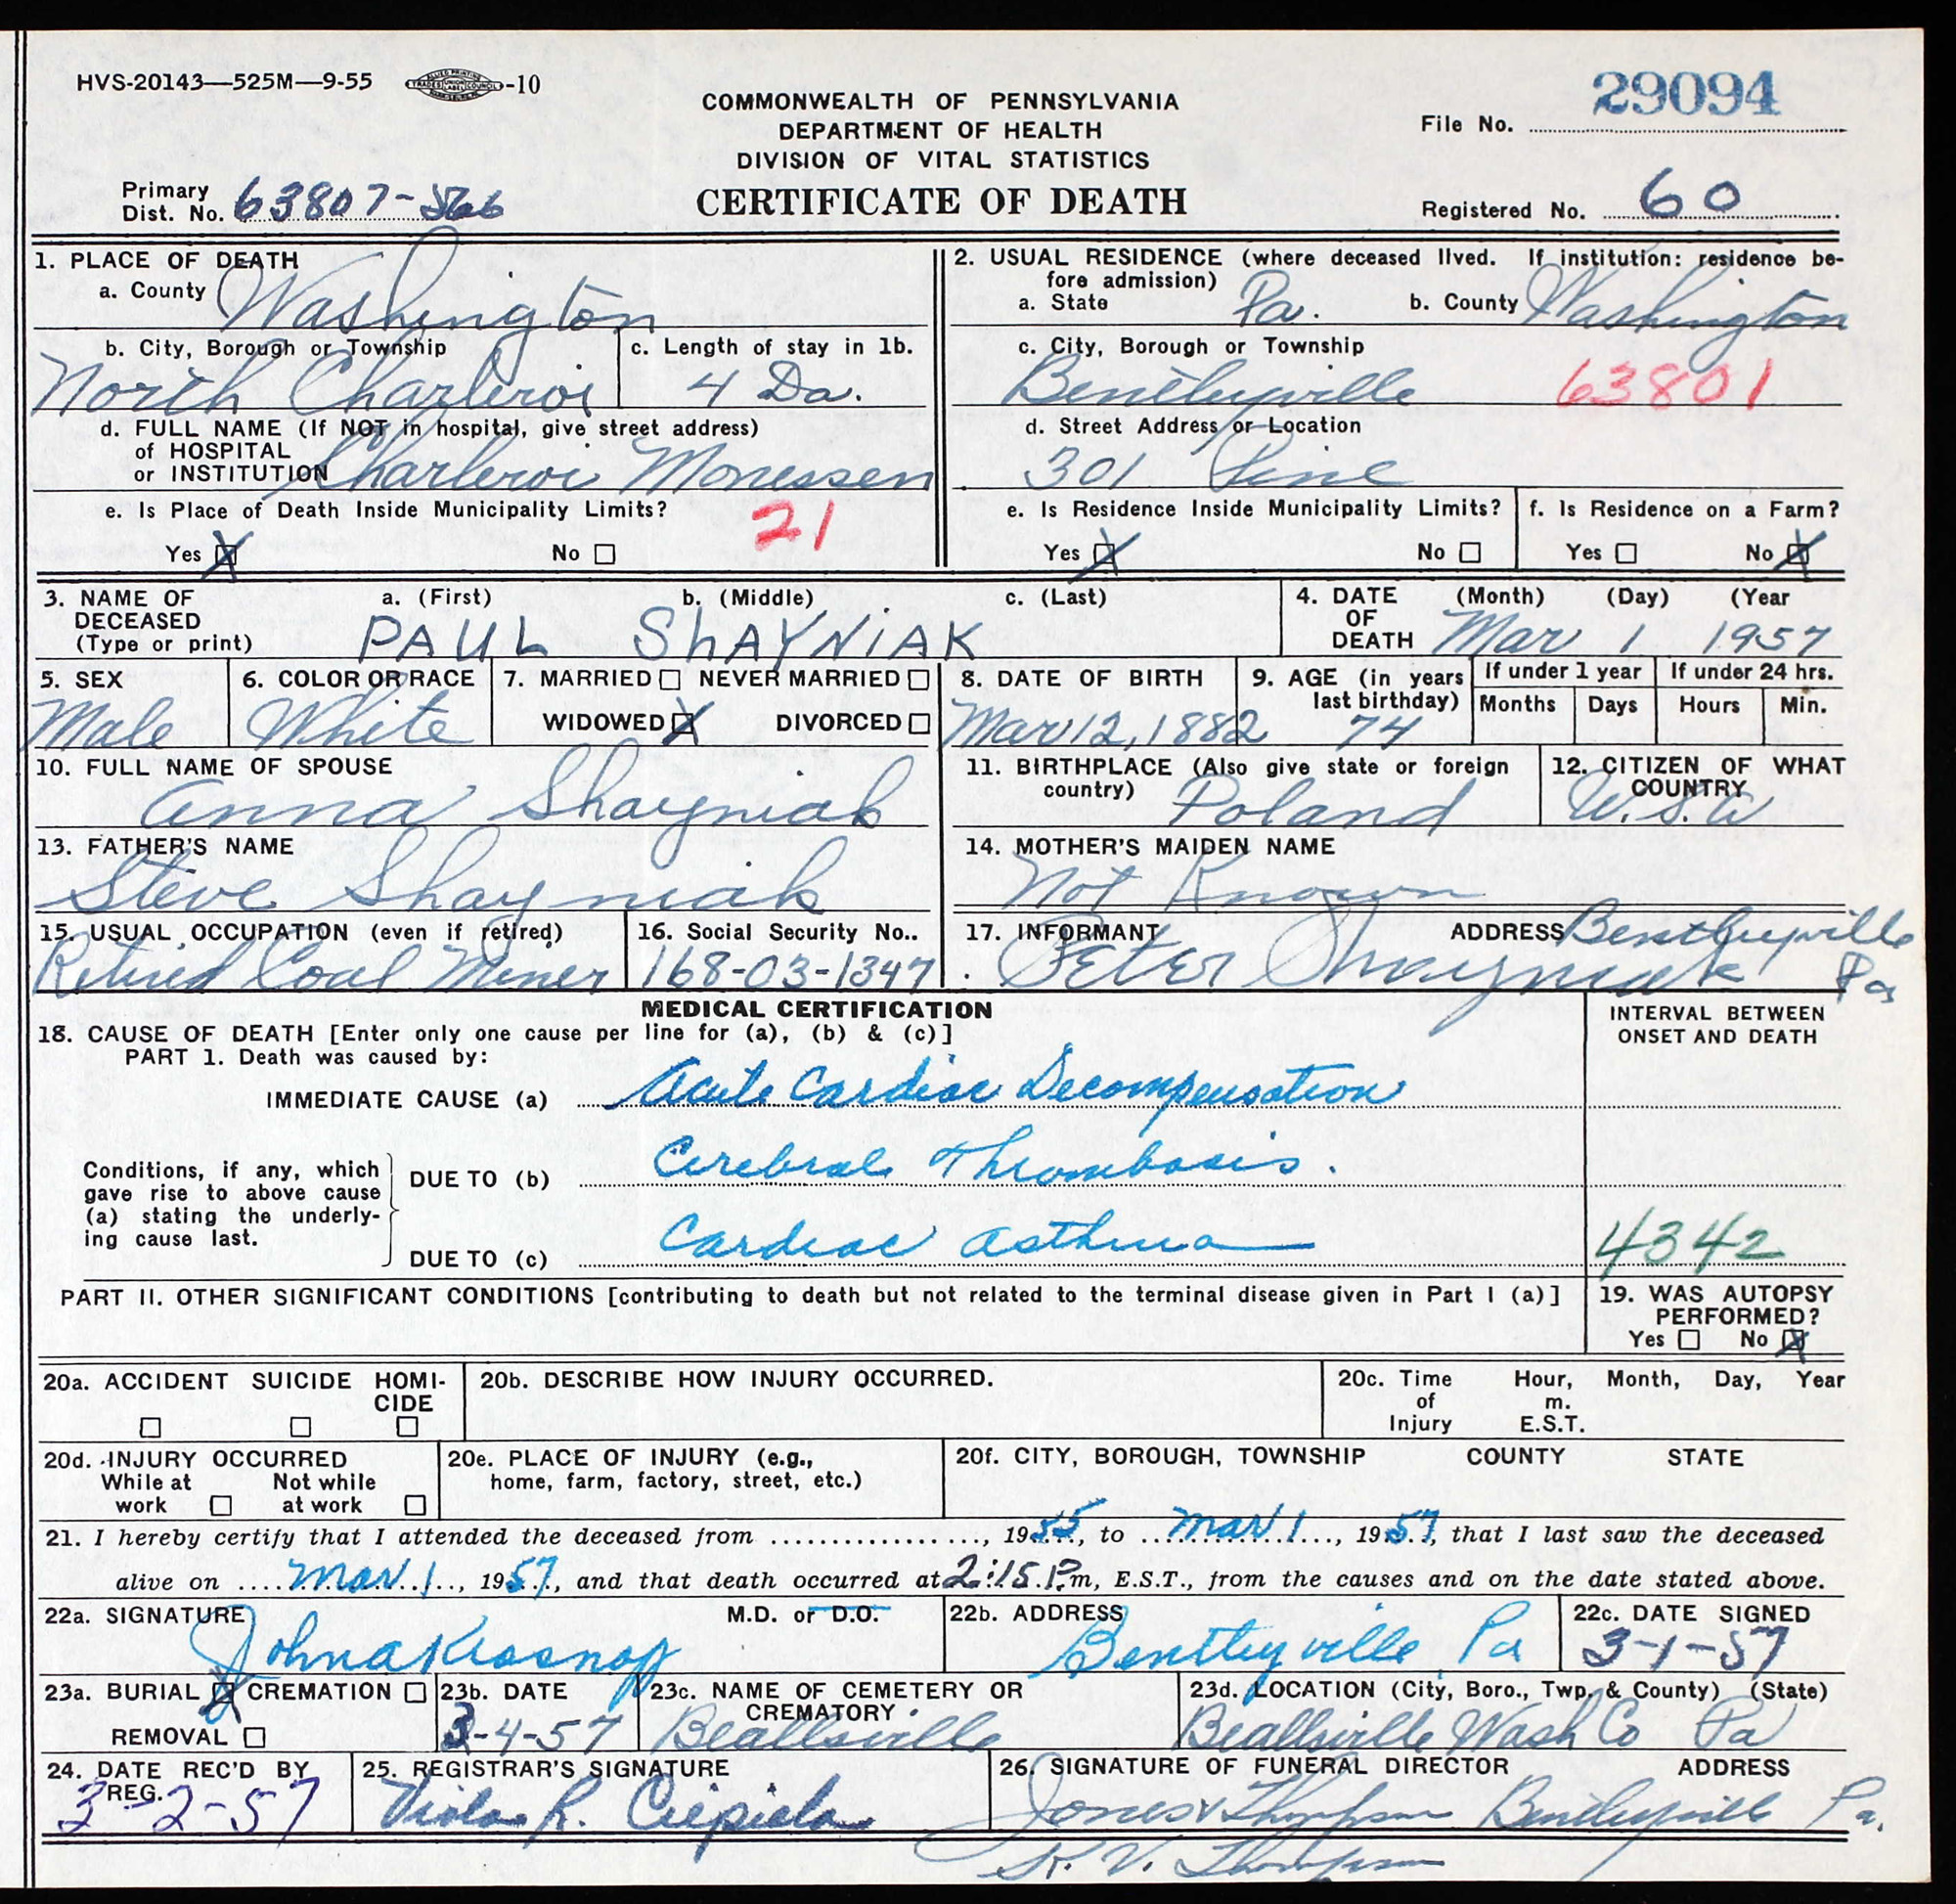 HVS-20143—525M—9-55 -10
29094
COMMONWEALTH OF PENNSYLVANIA
DEPARTMENT OF HEALTH
DIVISION OF VITAL STATISTICS
CERTIFICATE OF DEATH
File No.
Primary
Dist. No. 63807-
Registered No. 60
1. PLACE OF DEATH
a. County Washington
b. City, Borough or Township
North Charleroi
c. Length of stay in 1b.
4 Da.
d. FULL NAME (If NOT in hospital, give street address)
of HOSPITAL
or INSTITUTION Charleroi Monessen
e. Is Place of Death Inside Municipality Limits?
21
Yes X No
2. USUAL RESIDENCE (where deceased lived. If institution: residence be-
fore admission)
a. State Pa. b. County Washington
c. City, Borough or Township
Bentleyville 63801
d. Street Address or Location
301 Pine
e. Is Residence Inside Municipality Limits?
Yes X No
f. Is Residence on a Farm?
Yes No X
3. NAME OF
DECEASED
(Type or print)
a. (First) b. (Middle) c. (Last)
PAUL ShAYNiAK
4. DATE
OF
DEATH
(Month) (Day) (Year
Mar 1 1957
5. SEX
Male
6. COLOR OR RACE
White
7. MARRIED NEVER MARRIED
WIDOWED X DIVORCED
8. DATE OF BIRTH
Mar 12, 1882
9. AGE (in years
last birthday)
74
If under 1 year
Months Days
If under 24 hrs.
Hours Min.
10. FULL NAME OF SPOUSE
Anna Shayniak
11. BIRTHPLACE (Also give state or foreign
country) Poland
12. CITIZEN OF WHAT
COUNTRY
U.S.A
13. FATHER'S NAME
Steve Shayniak
14. MOTHER'S MAIDEN NAME
Not Known
15. USUAL OCCUPATION (even if retired)
Retired Coal Miner
16. Social Security No..
168-03-1347
17. INFORMANT ADDRESS Bentleyville
Peter Shayniak Pa
MEDICAL CERTIFICATION
18. CAUSE OF DEATH [Enter only one cause per line for (a), (b) & (c)]
PART 1. Death was caused by:
INTERVAL BETWEEN
ONSET AND DEATH
IMMEDIATE CAUSE (a) Acute Cardiac Decompensation
Conditions, if any, which
gave rise to above cause
(a) stating the underly-
ing cause last.
DUE TO (b) Cerebral Thrombosis.
DUE TO (c) Cardiac Asthma
4342
PART II. OTHER SIGNIFICANT CONDITIONS [contributing to death but not related to the terminal disease given in Part I (a)]
19. WAS AUTOPSY
PERFORMED?
Yes No X
20a. ACCIDENT SUICIDE HOMI-
CIDE
20b. DESCRIBE HOW INJURY OCCURRED.
20c. Time
of
Injury
Hour, Month, Day, Year
m.
E.S.T.
20d. INJURY OCCURRED
While at
work
Not while
at work
20e. PLACE OF INJURY (e.g.,
home, farm, factory, street, etc.)
20f. CITY, BOROUGH, TOWNSHIP COUNTY STATE
21. I hereby certify that I attended the deceased from ................, 1955, to Mar 1, 1957, that I last saw the deceased
alive on Mar 1, 1957, and that death occurred at 2:15 P.m, E.S.T., from the causes and on the date stated above.
22a. SIGNATURE M.D. or D.O.
John A Krasnap
22b. ADDRESS
Bentleyville, Pa
22c. DATE SIGNED
3-1-57
23a. BURIAL X CREMATION
REMOVAL
23b. DATE
3-4-57
23c. NAME OF CEMETERY OR
CREMATORY
Beallsville
23d. LOCATION (City, Boro., Twp. & County) (State)
Beallsville Wash Co Pa
24. DATE REC'D BY
REG.
3-2-57
25. REGISTRAR'S SIGNATURE
Viola R. Ciepiela
26. SIGNATURE OF FUNERAL DIRECTOR ADDRESS
Jones & Thompson Bentleyville Pa.
K. V. Thompson